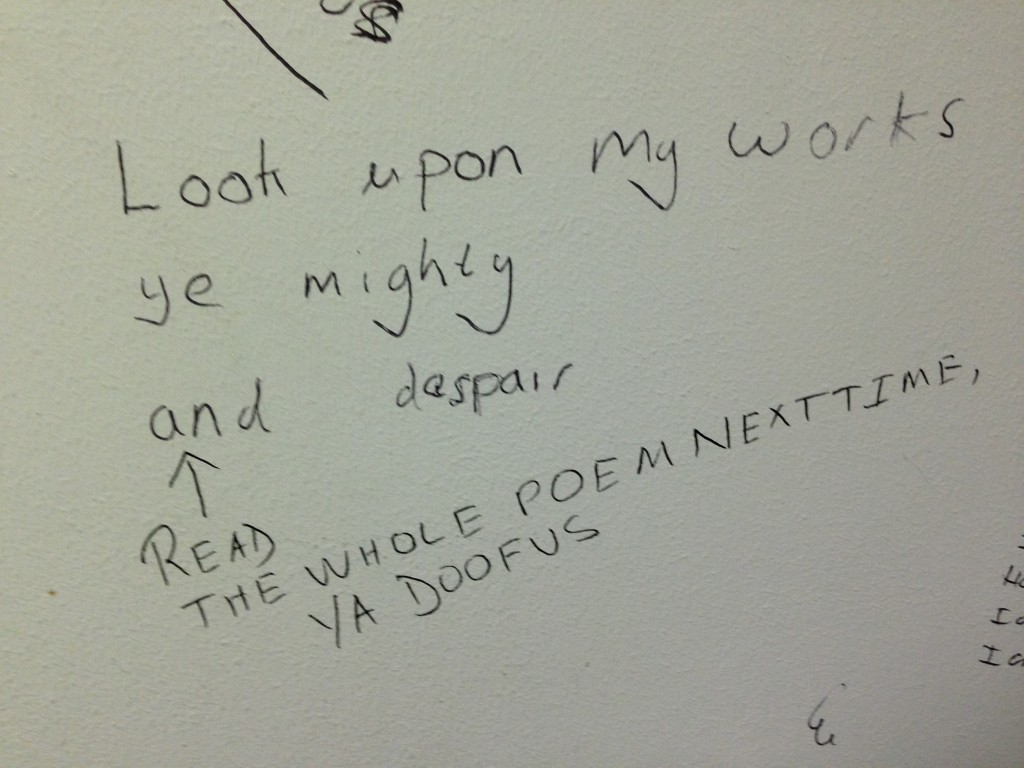 $
Look upon my works
ye mighty
and despair
↑
READ
THE WHOLE POEM NEXT TIME,
YA DOOFUS